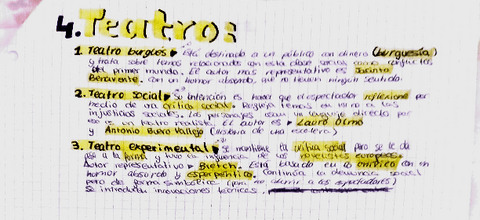 4. Teatro:
1. Teatro burgés Está destinado a un público con dinero (burguesía)
y trata sobre temas relacionados con esta clase social como conflictos
del primer mundo. El autor mas representativo es Jacinto
Benavente. con un humor absurdo, que no tienen ningún sentido.
2. Teatro social Su intención es hacer que el espectador reflexione por
medio de una crítica social. Refleja temas en torno a las
injusticias sociales. Los personajes usan un lenguaje directo por
eso es un teatro realista. El autor es Lauro Olmo
y Antonio Buero Vallejo (Historia de una escalera)
3. Teatro experimental Se mantiene la crítica social pero se le da
a la forma y tuvo la influencia de los novelistas europeos.
Autor representativo Está basado en lo onírico con un
humor absurdo y esperpéntico. Continúa la denuncia social
pero de forma simbólica (para no aburrir a los espectadores)
se introducen innovaciones técnicas.